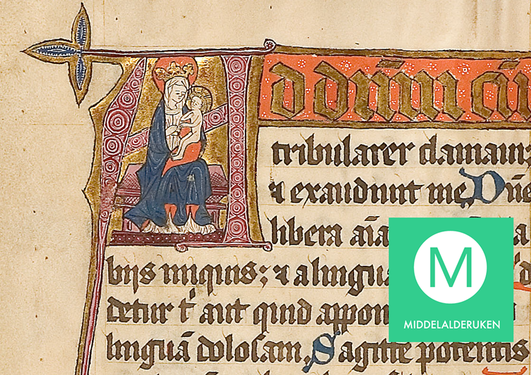 Ad dñm cũ
tribularer clamaui
⁊ exaudiuit me Dñ
libera aĩa
bijs iniquis; ⁊ a lingua
detur t̃ aut quid appon
linguã dolosam, Sagitte potentis
M
MIDDELALDERUKEN